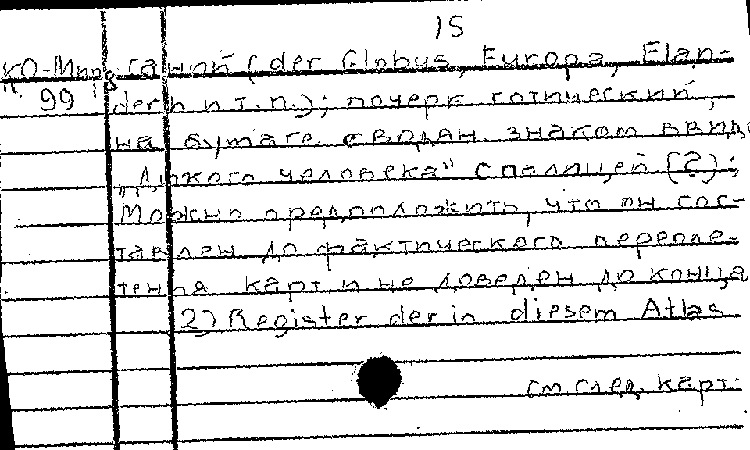 15
КО-Мир саний (der Globus, Europa, Flan-
99 18 dern и т.п.); почерк готический,
на бумаге с водян. знаком в виде
"Дикого человека" с палицей (?);
Можно предположить, что он сос-
тавлен до фактического перепле-
тения карт и не доведен до конца
2) Register der in diesem Atlas
см след. карт.